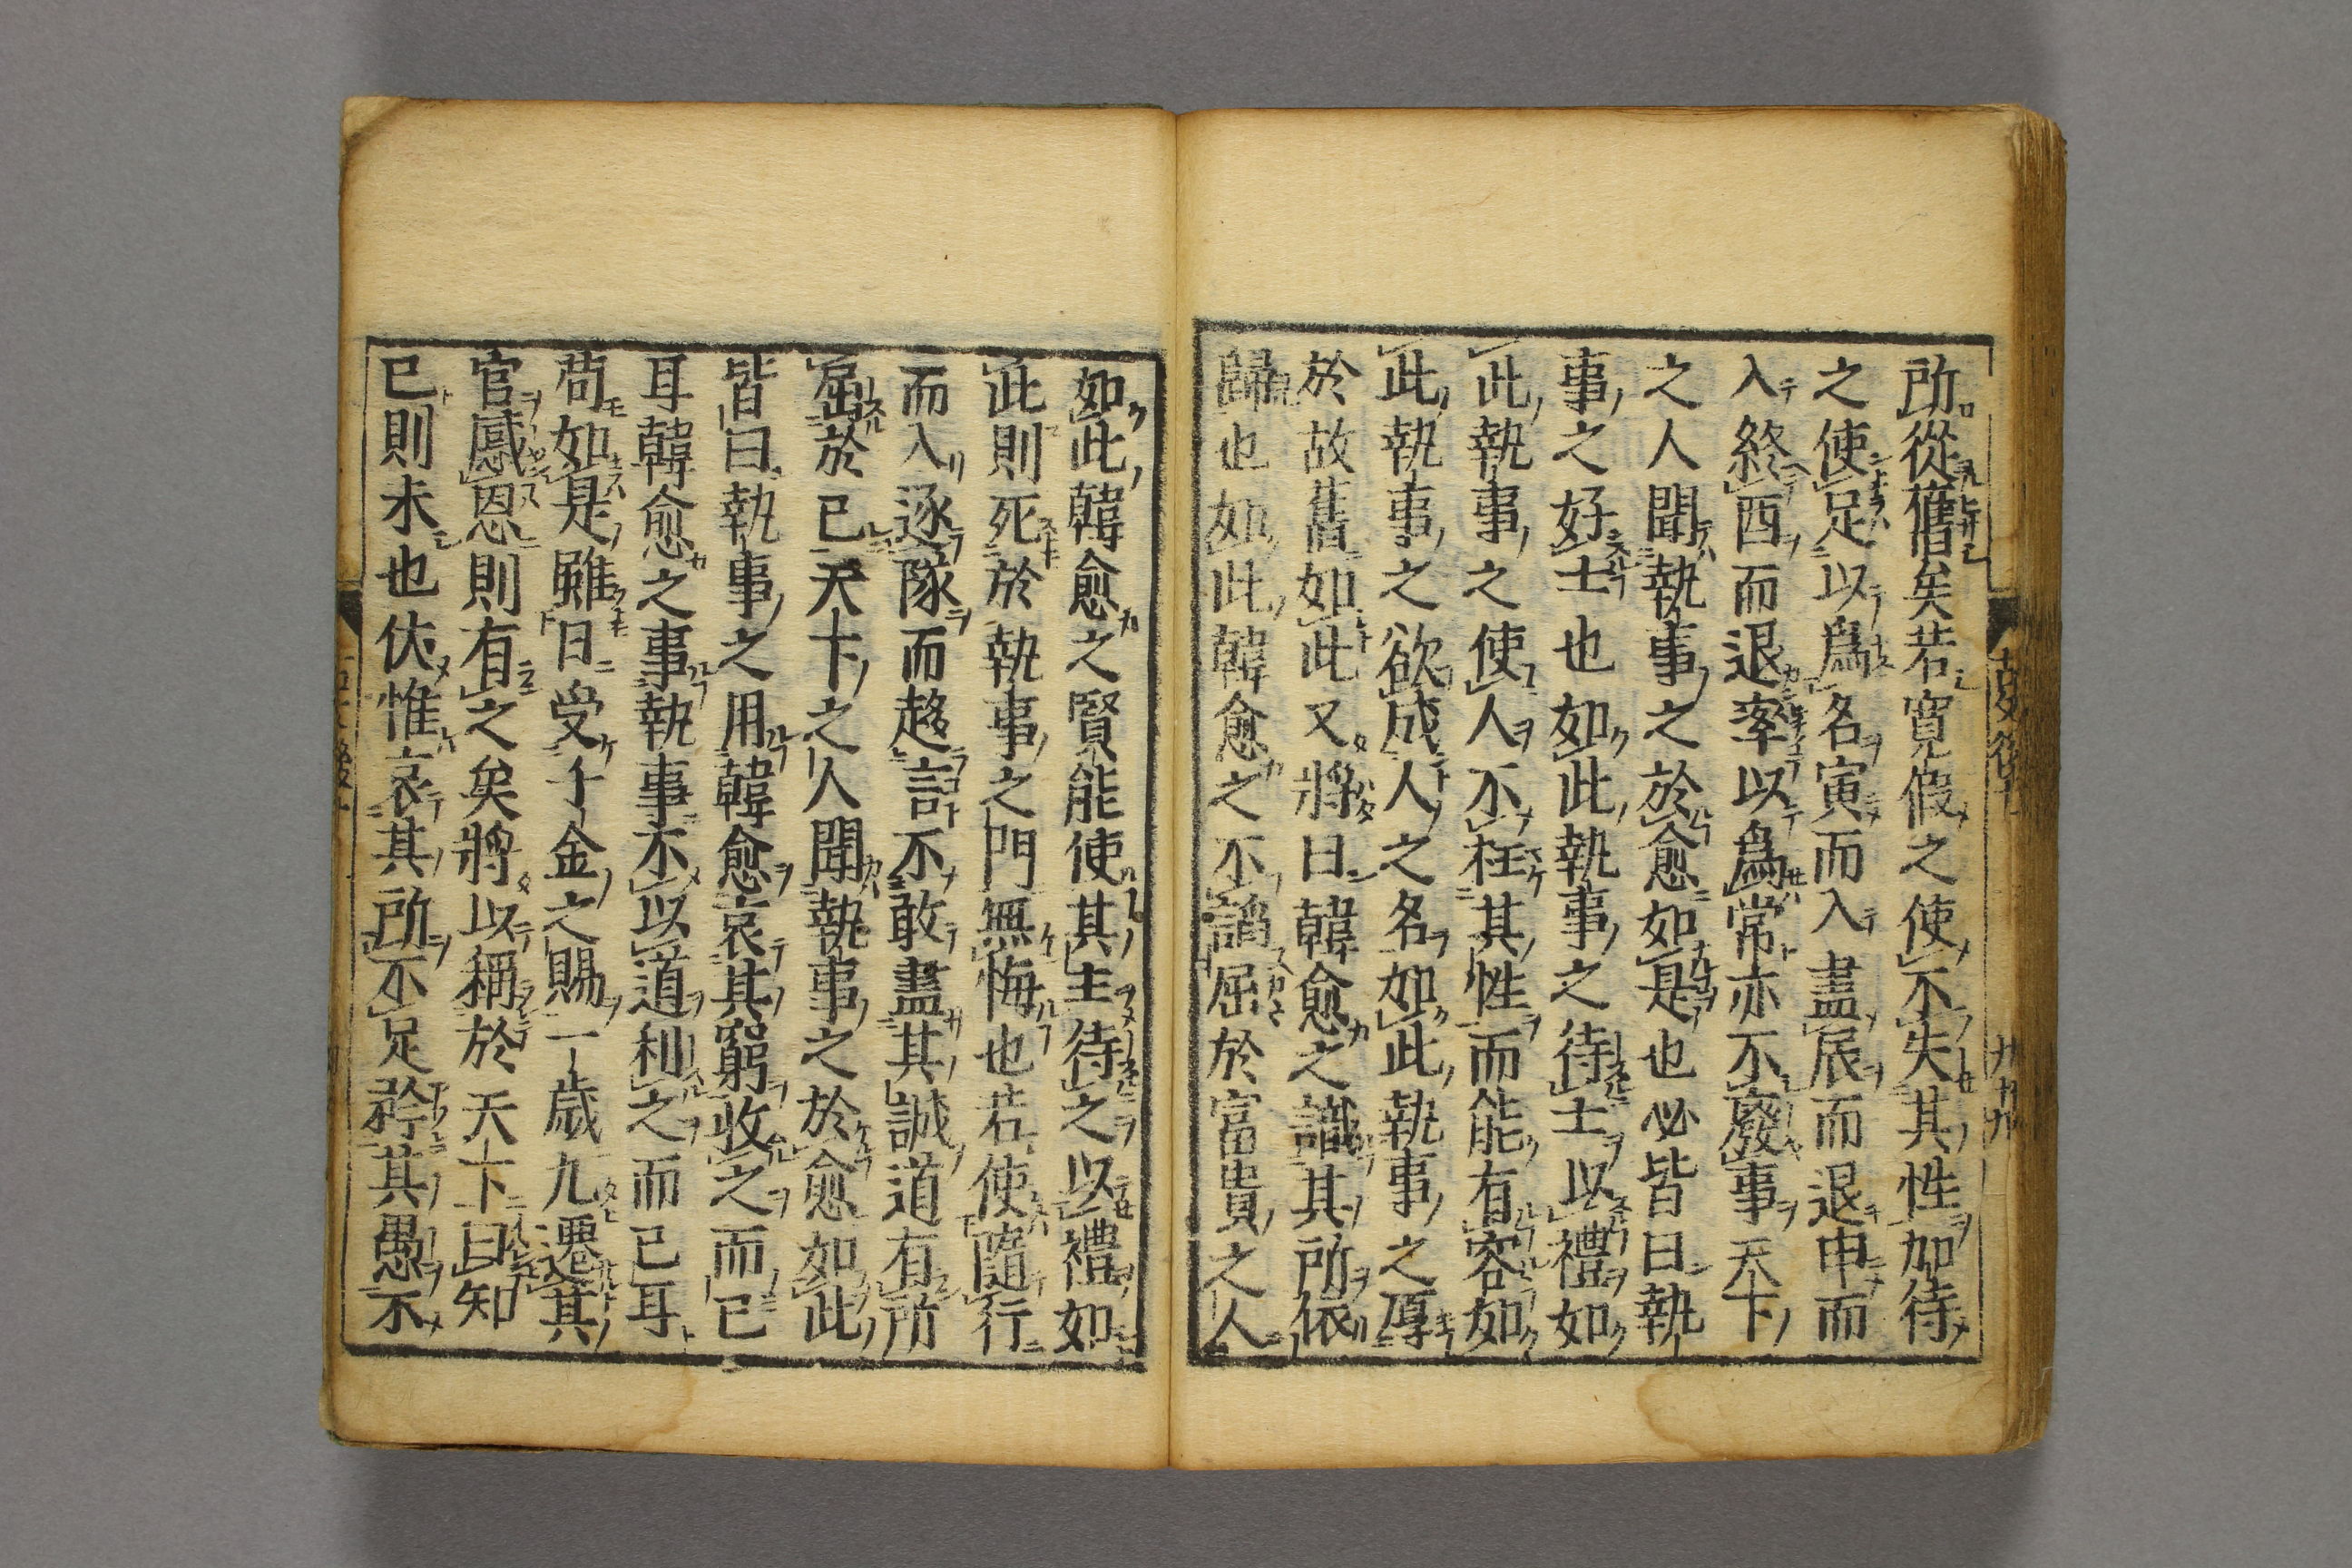 所從舊矣若寛假之使不失其性加待
之使足以爲名寅而入盡辰而退申而
入終酉而退率以爲常亦不廢事天下
之人聞執事之於愈如是也必皆曰執
事之好士也如此執事之待士以禮如
此執事之使人不枉其性而能有容如
此執事之欲成人之名如此執事之厚
於故舊如此又將曰韓愈之識其所依
歸也如此韓愈之不諂屈於富貴之人
如此韓愈之賢能使其主待之以禮如
此則死於執事之門無悔也若使隨行
而入逐隊而趍言不敢盡其誠道有所
屈於已天下之人聞執事之於愈如此
皆曰執事之用韓愈哀其窮收之而已
耳韓愈之事執事不以道利之而已耳
苟如是雖日受千金之賜一歲九遷其
官感恩則有之矣將以稱於天下曰知
已則未也伏惟哀其所不足矜其愚不